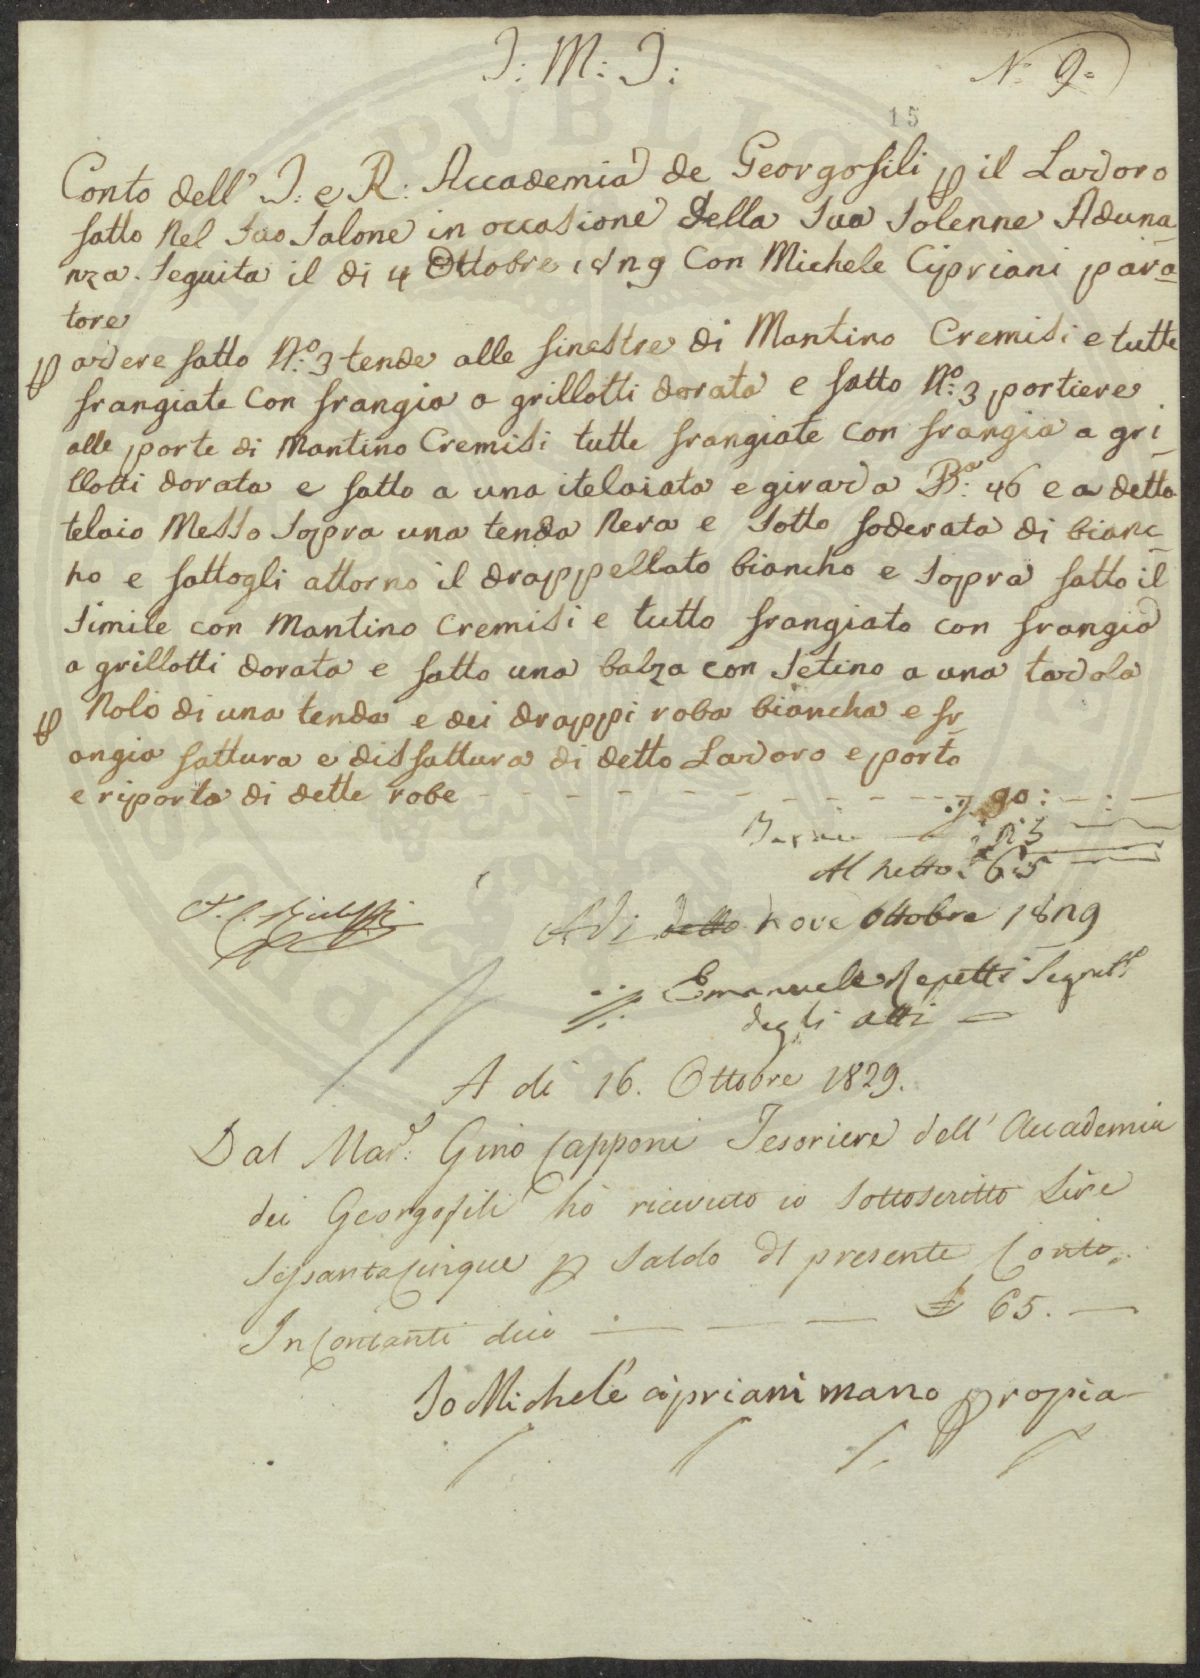 J: M: J:
N: 9=
15
Conto dell' I: e R: Accademia de Georgofili p il Lavoro
fatto Nel Suo Salone in occasione della Sua Solenne Aduna
nza. Seguita il di 4 Ottobre 1829 Con Michele Cipriani para
tore
p avere fatto N:o 3 tende alle finestre di Mantino Cremisi e tutte
frangiate Con frangia a grillotti dorata e fatto N:o 3 portiere
alle porte di Mantino Cremisi tutte frangiate con frangia a gri
llotti dorata e fatto a una itelaiata e girava B:a 46 e a detto
telaio Messo Sopra una tenda Nera e Sotto foderata di bianc
ho e fattogli attorno il drappellato biancho e Sopra fatto il
Simile con Mantino Cremisi e tutto frangiato con frangia
a grillotti dorata e fatto una balza con Setino a una tavola
p Nolo di una tenda e dei drappi roba biancha e fr
angia fattura e disfattura di detto Lavoro e porto
e riporto di dette robe - - - - - - 90: - : -
Al netto 65
Adi detto nove Ottobre 1829
Emanuele Repetti Segret.
degli atti
A di 16. Ottobre 1829.
Dal Mar: Gino Capponi Tesoriere dell' Accademia
dei Georgofili hò ricevuto io Sottoscritto Lire
Sessantacinque p Saldo dl presente Conto.
In Contanti dico — — — — £ 65. —
Io Michele cipriani mano propia